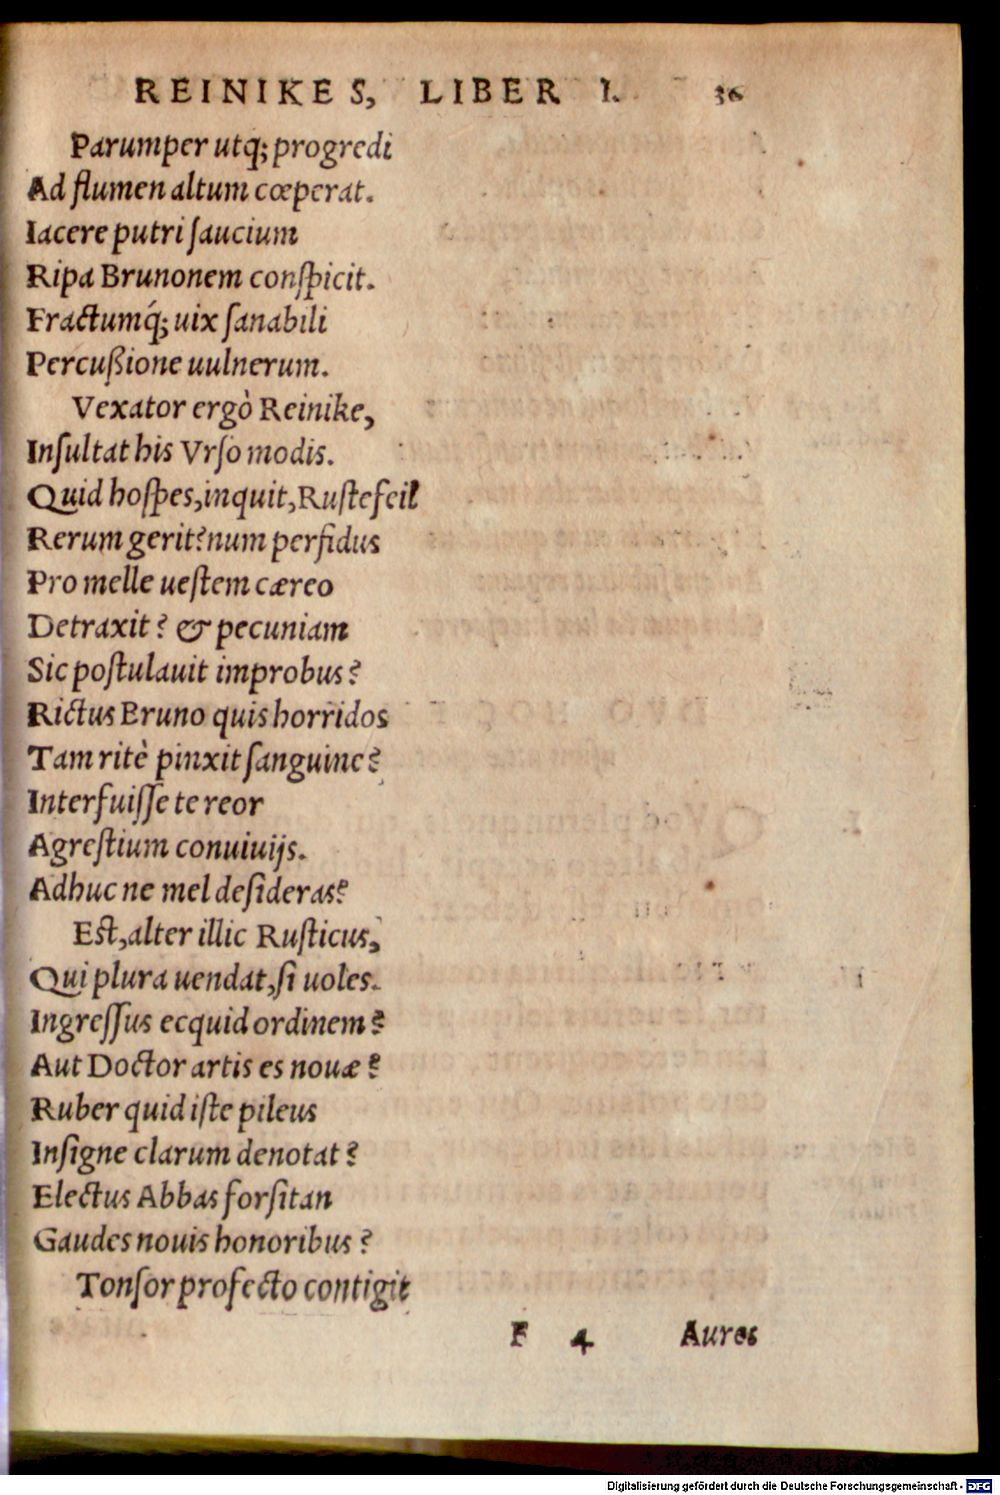 REINIKES, LIBER I. 36
Parumper utq; progredi
Ad flumen altum cœperat.
Iacere putri ſaucium
Ripa Brunonem conſpicit.
Fractumq́; uix ſanabili
Percußione uulnerum.
Vexator ergò Reinike,
Inſultat his Vrſo modis.
Quid hoſpes, inquit, Ruſtefeil
Rerum gerit? num perfidus
Pro melle ueſtem cæreo
Detraxit? & pecuniam
Sic poſtulauit improbus?
Rictus Bruno quis horridos
Tam ritè pinxit ſanguine?
Interfuiſſe te reor
Agreſtium conuiuijs.
Adhuc ne mel deſideras?
Eſt, alter illic Ruſticus,
Qui plura uendat, ſi uoles.
Ingreſſus ecquid ordinem?
Aut Doctor artis es nouæ?
Ruber quid iſte pileus
Inſigne clarum denotat?
Electus Abbas forſitan
Gaudes nouis honoribus?
Tonſor profecto contigit
F 4 Aures
Digitalisierung gefördert durch die Deutsche Forschungsgemeinschaft - DFG